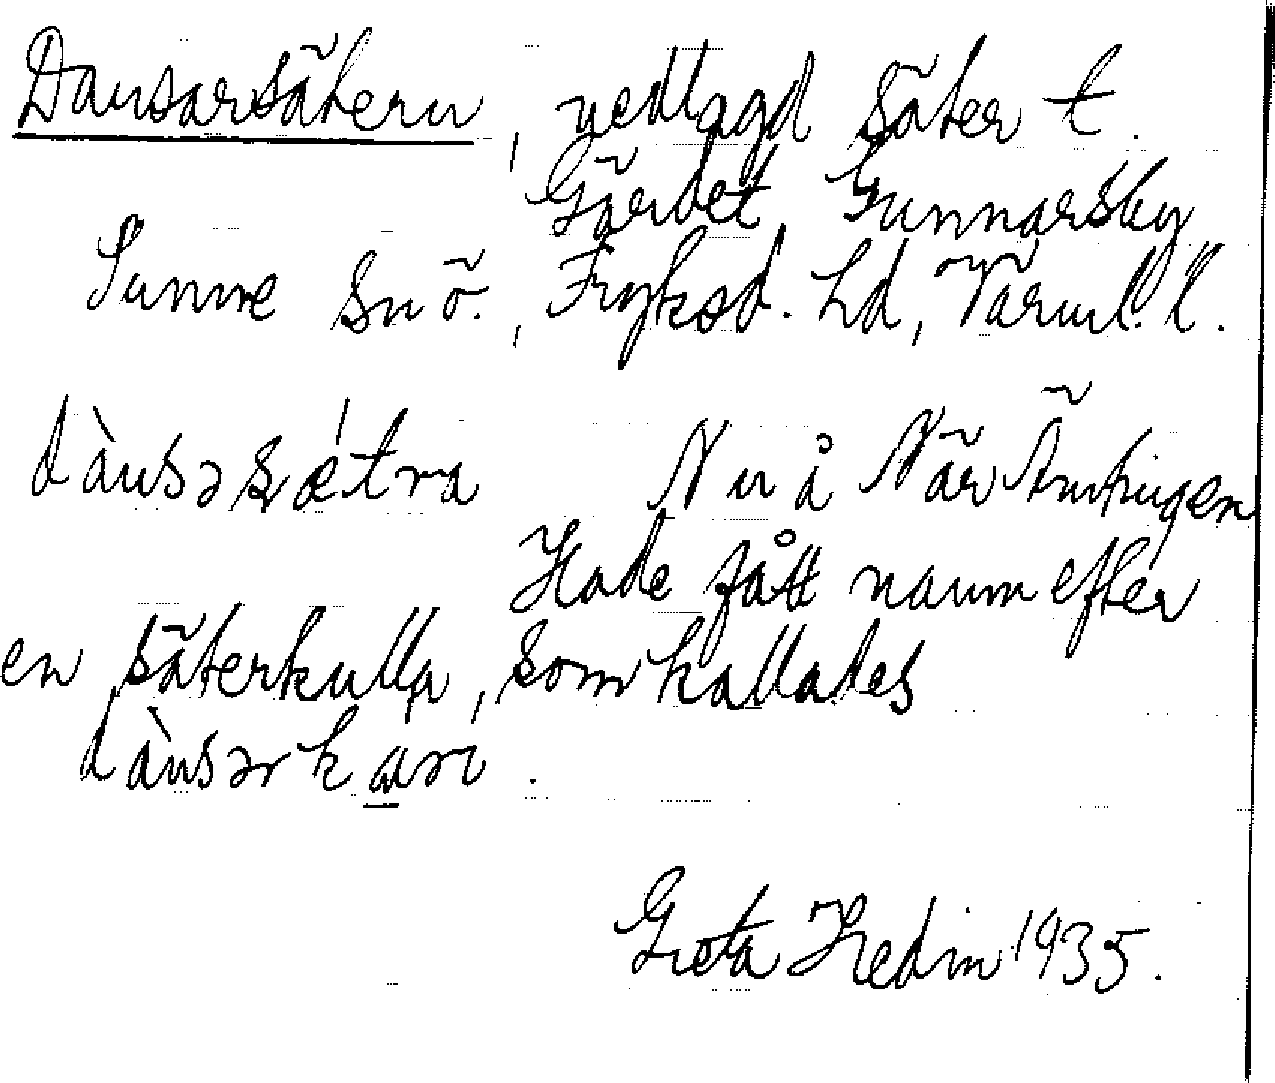 Dansarsätern, nedlagd säter t.
Gärdet, Gunnarsby
Sunne sn ö., Fryksd. hd, Värml. l.
dànsəsǽtra N u å När Ämtingen
Hade fått namn efter
en säterkulla, som kallades
dànsərkari.
Greta Hedin 1935.